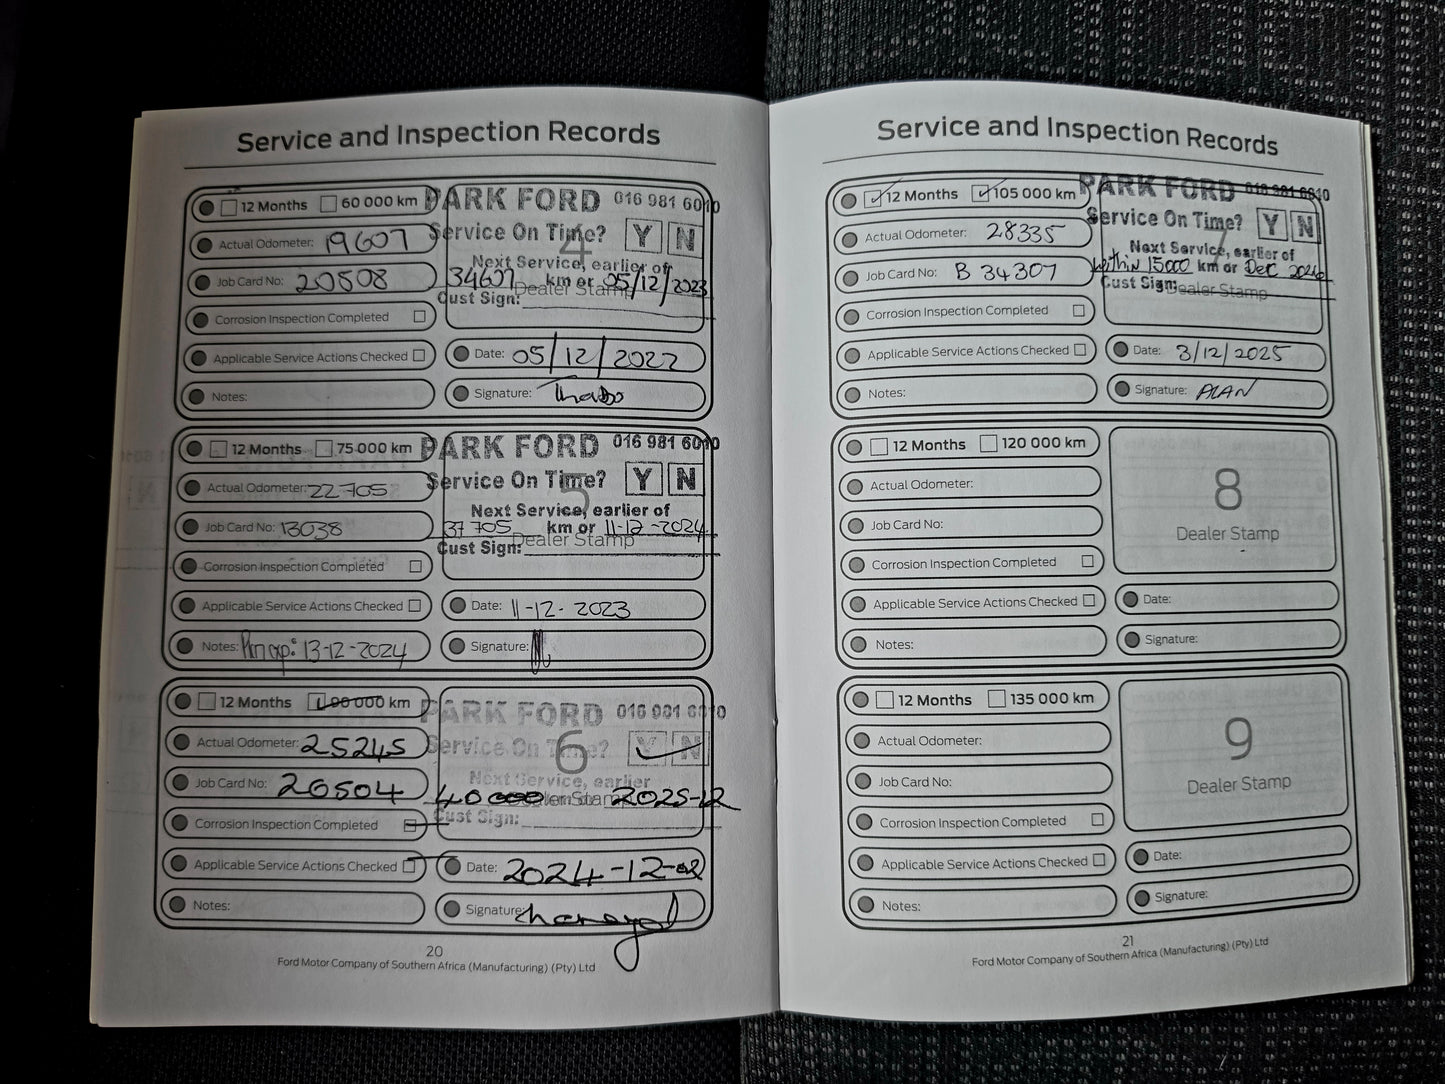 Service and Inspection Records
12 Months 60 000 km PARK FORD 016 981 6010
Actual Odometer: 19607 Service On Time? Y N
4
Next Service, earlier of
Job Card No: 20508 34607 km or 05/12/2023
Dealer Stamp
Cust Sign:
Corrosion Inspection Completed
Applicable Service Actions Checked Date: 05/12/2022
Notes: Signature: Thabo
12 Months 75 000 km PARK FORD 016 981 6010
Actual Odometer: 22705 Service On Time? Y N
5
Next Service, earlier of
Job Card No: 13038 37 705 km or 11-12-2024
Dealer Stamp
Cust Sign:
Corrosion Inspection Completed
Applicable Service Actions Checked Date: 11-12-2023
Notes: exp: 13-12-2024 Signature:
12 Months 90 000 km PARK FORD 016 981 6010
Actual Odometer: 25245 Service On Time? Y N
6
Next Service, earlier
Job Card No: 20504 40 000 2025-12
Dealer Stamp
Cust Sign:
Corrosion Inspection Completed
Applicable Service Actions Checked Date: 2024-12-02
Notes: Signature:
20
Ford Motor Company of Southern Africa (Manufacturing) (Pty) Ltd
Service and Inspection Records
12 Months 105 000 km PARK FORD 016 981 6010
Actual Odometer: 28335 Service On Time? Y N
7
Next Service, earlier of
Job Card No: B 34307 within 15000 km or Dec 2026
Cust Sign: Dealer Stamp
Corrosion Inspection Completed
Applicable Service Actions Checked Date: 3/12/2025
Notes: Signature: ALAN
12 Months 120 000 km
Actual Odometer: 8
Job Card No: Dealer Stamp
Corrosion Inspection Completed
Applicable Service Actions Checked Date:
Notes: Signature:
12 Months 135 000 km
Actual Odometer: 9
Job Card No: Dealer Stamp
Corrosion Inspection Completed
Applicable Service Actions Checked Date:
Notes: Signature:
21
Ford Motor Company of Southern Africa (Manufacturing) (Pty) Ltd